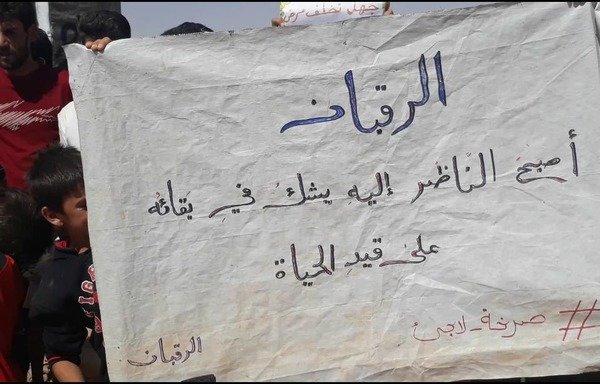 جهل تخلف مرض
الركبان
أصبح الناظر إليه يشك في بقائه
على قيد الحياة
#صرخة_لاجئ
الركبان